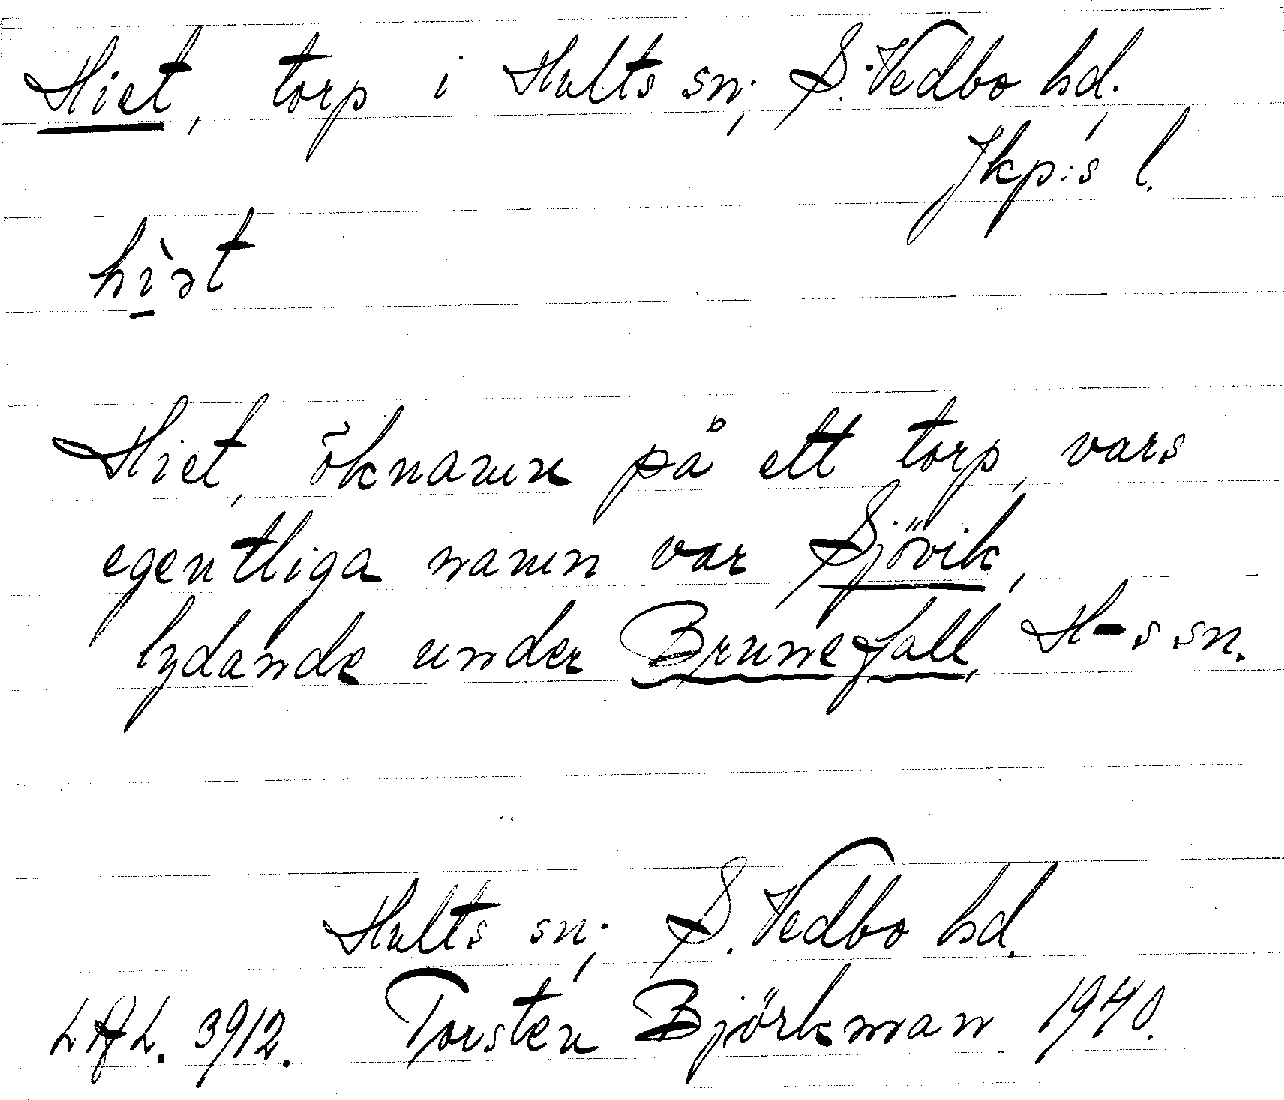 Hiet, torp i Hults sn; S. Vedbo hd,
Jkp:s l.
Hiet, öknamn på ett torp, vars
egentliga namn var Sjövik,
lydande under Brunefall, H-s sn.
Hults sn; S. Vedbo hd.
3912. Torsten Björkman 1940.